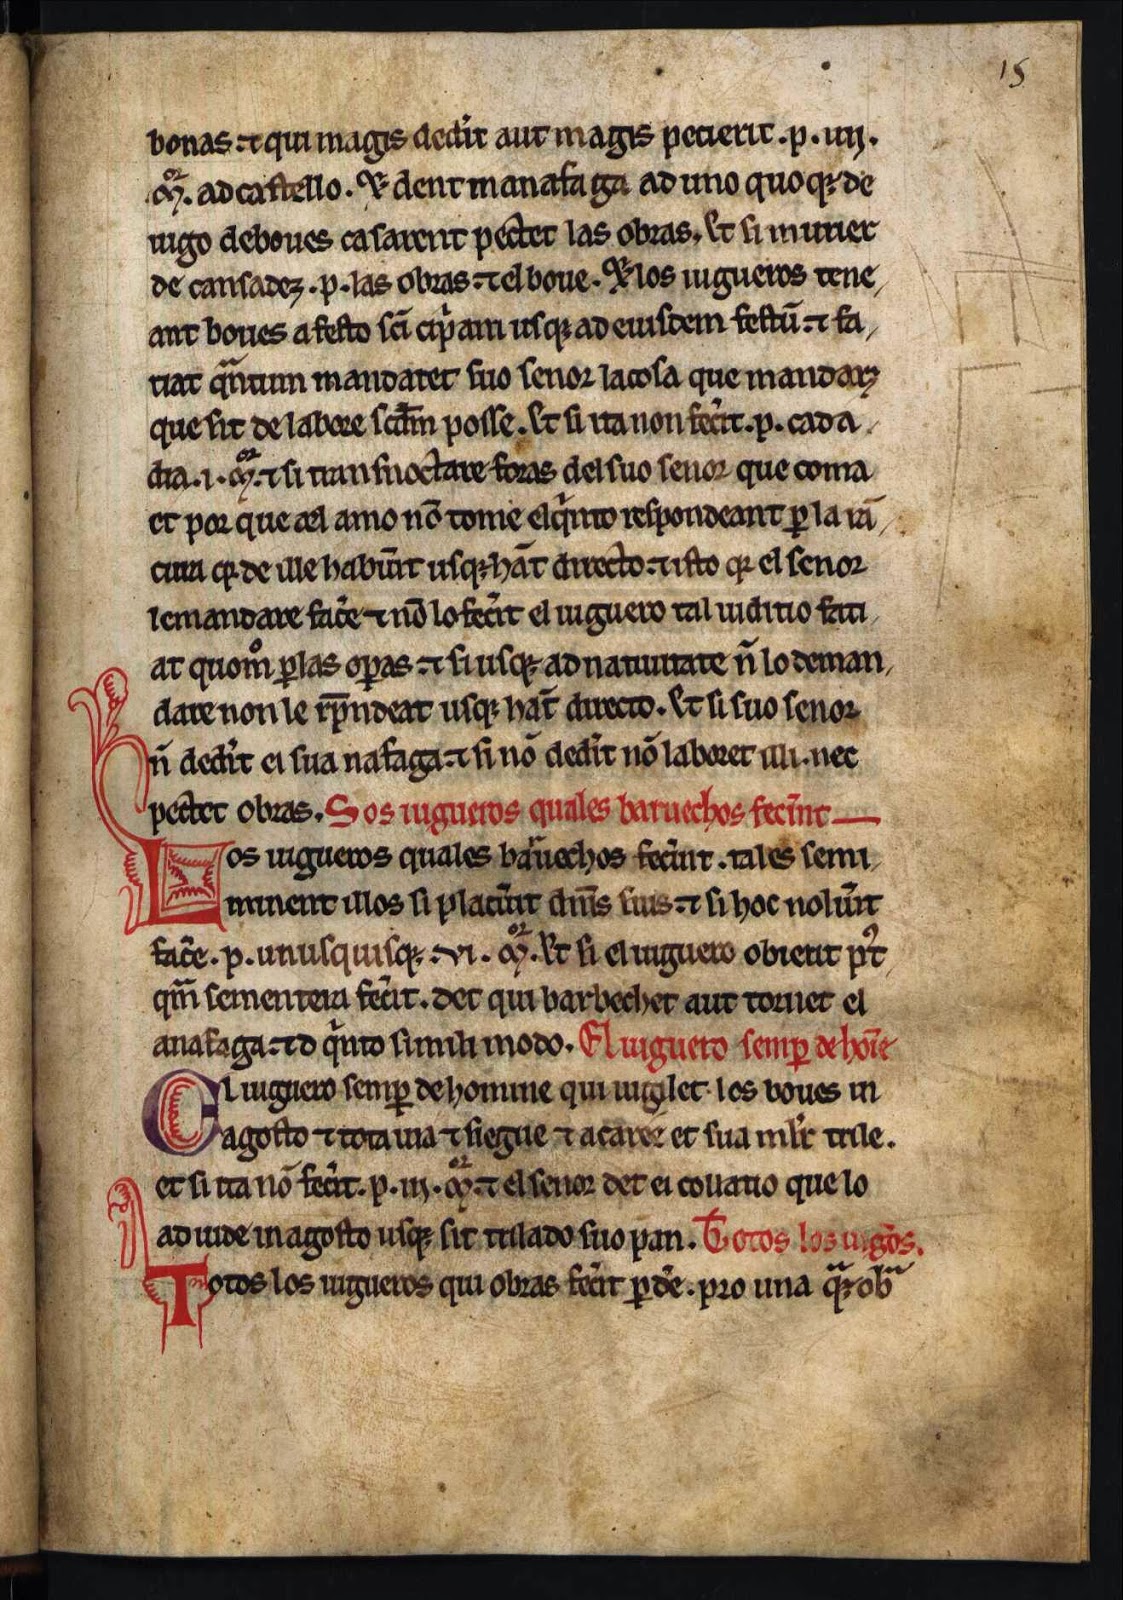 15
bonas ⁊ qui magis dedĩt aut magis petierit .p. iiij.
m̃r. ad castello. Et dent manafaga ad uno quoqꝫ de
iugo de boues casarent pectet las obras. Et si murier
de cansadeʒ .p. las obras ⁊ el boue. Et los iugueros tene
ant boues a festo sc̃i cip̃ani usqꝫ ad eiusdem festũ ⁊ fa
tiat q̃ntum mandaret suo senor la cosa que mandar&
que sit de labore scd̃m posse. Et si ita non fec̃it .p. cada
dia .i. m̃r. ⁊ si transnoctare foras del suo senor que coma
et por que al amo nõ tome el q̃nto respondeant ꝑ la iã
cura qꝫ de ille habũit usqꝫ hãt directo ⁊ isto qꝫ el senor
le mandare fac̃e ⁊ nõ lo fec̃it el iuguero tal iuditio fati
at quom̊ ꝑ las oꝑas ⁊ si usqꝫ ad natiuitate ñ lo deman
dare non le r̃pndeat usqꝫ hãt directo. Et si suo senor
ñ dedĩt ei sua nafaga ⁊ si nõ dedĩt nõ laboret illi. nec
pectet obras. Sos iugueros quales baruechos fecĩnt
Los iugueros quales baruechos fecĩnt. tales semi
minent illos si placũit dñis suis ⁊ si hoc nolũit
fac̃e .p. unusquisqꝫ .vi. m̃r. Et si el iuguero obierit pꝰt
q̃m sementera fec̃it. det qui barbechet aut tornet el
anafaga ⁊ d q̃nto simili modo. El iuguero semꝑ de hoĩe
El iuguero semꝑ de homine qui uigilet los boues in
agosto ⁊ tota uia ⁊ siegue ⁊ acarree et sua ml̃r trile.
et si ita nõ fec̃it .p. iij. m̃r. ⁊ el senor det ei couatio que lo
adiude in agosto usqꝫ sit trilado suo pan. Totos los iug̃os.
Totos los iugueros qui obras fec̃it ꝑd̃e. pro una q̃qꝫ ob̃